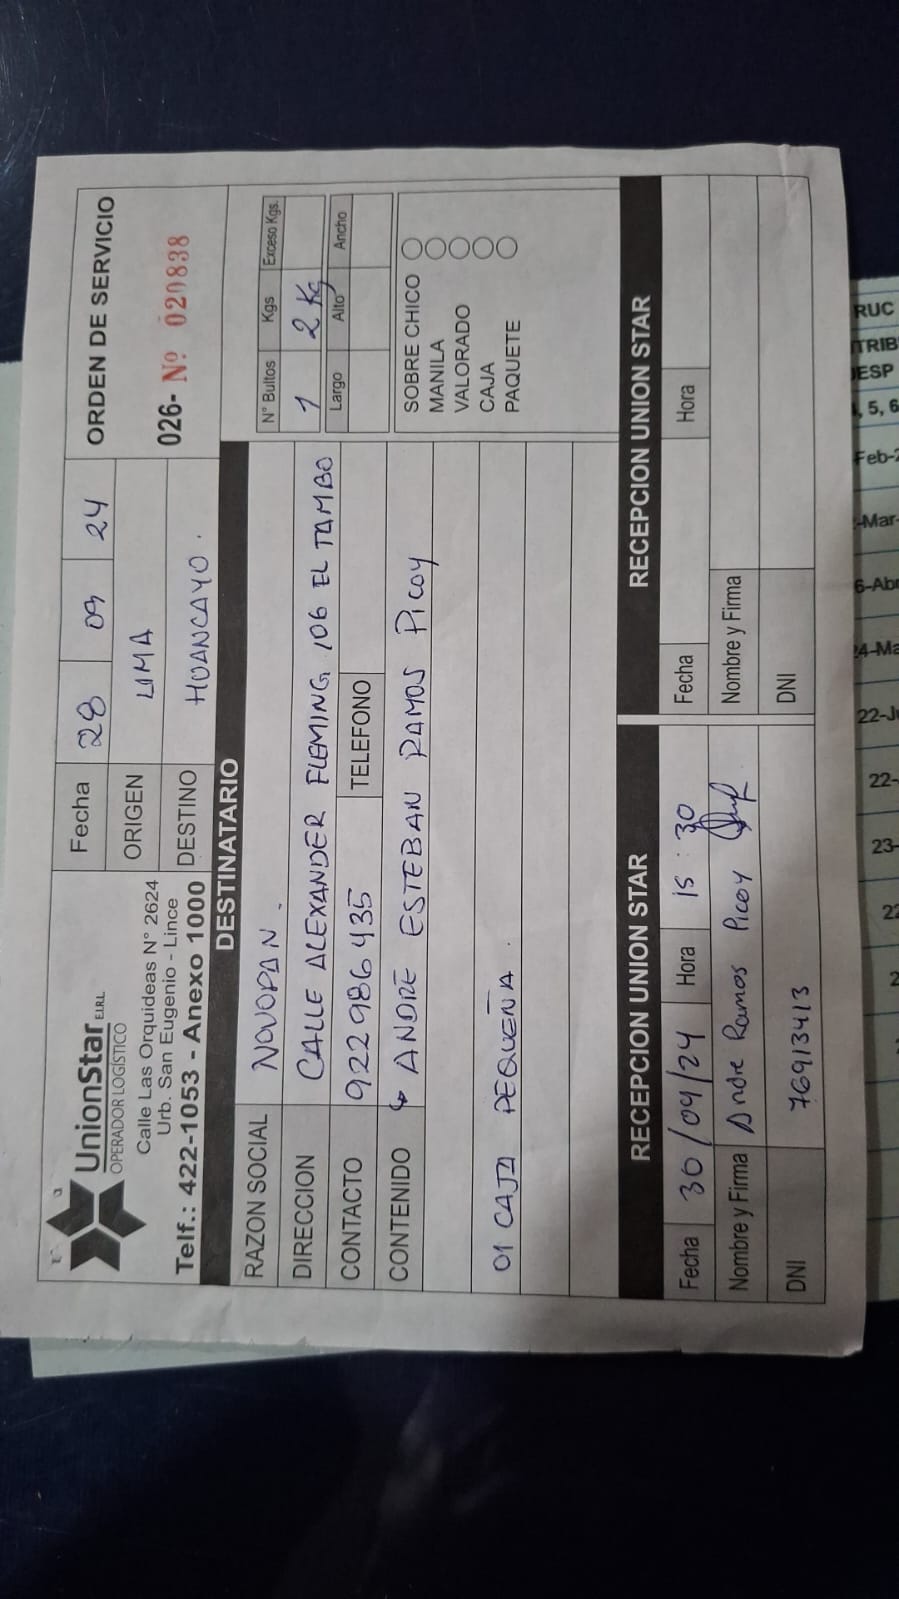 UnionStar E.I.R.L.
OPERADOR LOGÍSTICO
Calle Las Orquideas N° 2624
Urb. San Eugenio - Lince
Telf.: 422-1053 - Anexo 1000
Fecha 28 09 24
ORIGEN LIMA
DESTINO HUANCAYO.
ORDEN DE SERVICIO
026- Nº 020838
DESTINATARIO
RAZON SOCIAL NOVOPAN.
DIRECCION CALLE ALEXANDER FLEMING, 106 EL TAMBO
CONTACTO 922 986 435 TELEFONO
CONTENIDO ↳ ANDRÉ ESTEBAN RAMOS PICOY
01 CAJA PEQUEÑA.
N° Bultos Kgs Exceso Kgs.
1 2 Kg
Largo Alto Ancho
SOBRE CHICO
MANILA
VALORADO
CAJA
PAQUETE
RECEPCION UNION STAR
Fecha 30/09/24 Hora 15:30
Nombre y Firma Andre Ramos Picoy
DNI 76913413
RECEPCION UNION STAR
Fecha Hora
Nombre y Firma
DNI
RUC
TRIB
ESP
, 5, 6
Feb-2
-Mar-
6-Abr
24-Ma
22-Ju
22-
23-
22
2